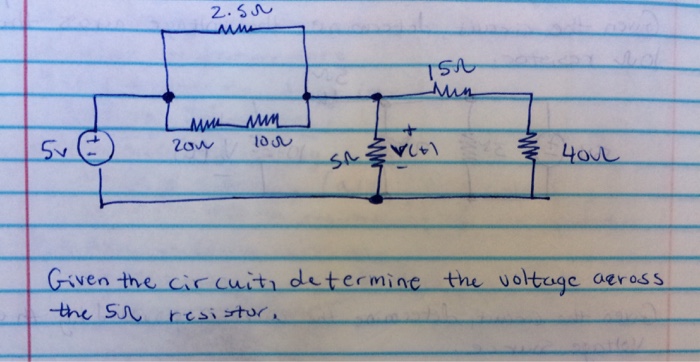 2.5Ω
15Ω
20Ω 10Ω
5v + -
5Ω + v(t) -
40Ω
Given the circuit, determine the voltage across
the 5Ω resistor.